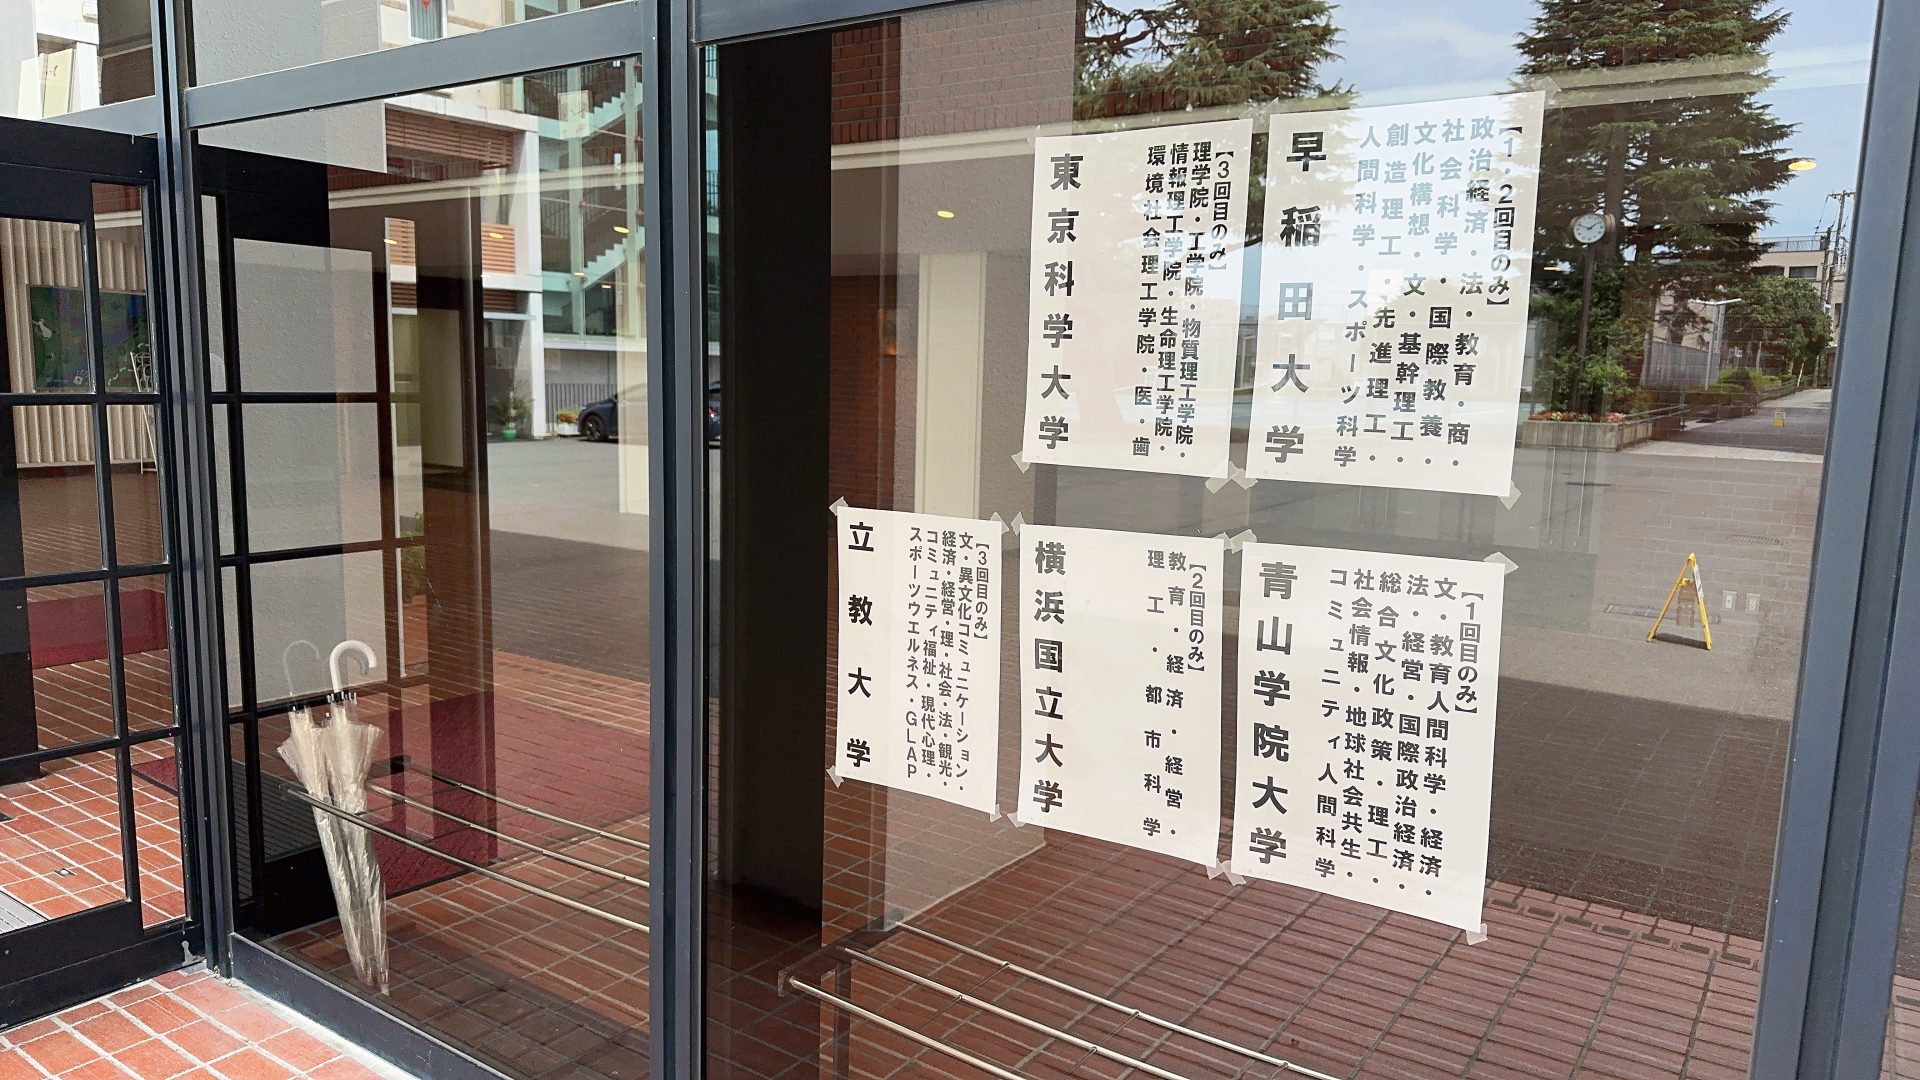 【1・2回目のみ】
政治経済・法・教育・商・
社会科学・国際教養・
文化構想・文・基幹理工・
創造理工・先進理工・
人間科学・スポーツ科学
早稲田大学
【3回目のみ】
理学院・工学院・物質理工学院・
情報理工学院・生命理工学院・
環境社会理工学院・医・歯
東京科学大学
【1回目のみ】
文・教育人間科学・経済・
法・経営・国際政治経済・
総合文化政策・理工・
社会情報・地球社会共生・
コミュニティ人間科学
青山学院大学
【2回目のみ】
教育・経済・経営・
理工・都市科学
横浜国立大学
【3回目のみ】
文・異文化コミュニケーション・
経済・経営・理・社会・法・観光・
コミュニティ福祉・現代心理・
スポーツウエルネス・GLAP
立教大学